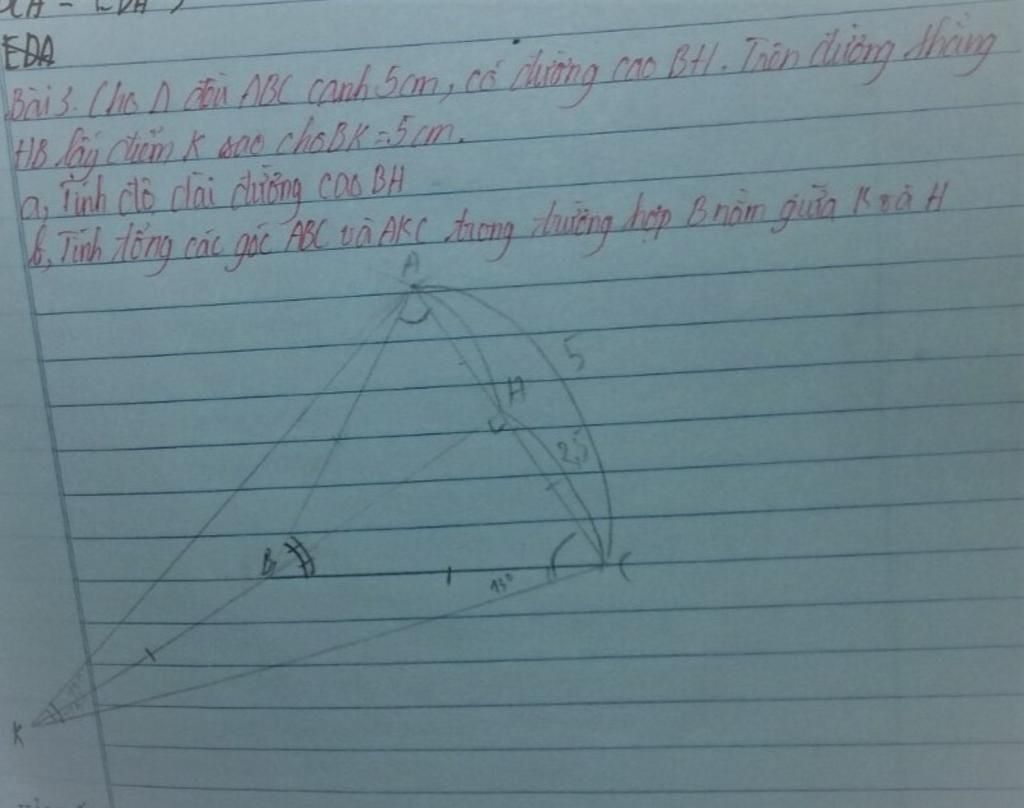 EDA
Bài 3. Cho Δ đều ABC cạnh 5cm, có đường cao BH. Trên đường thẳng
HB lấy điểm K sao cho BK = 5cm.
a, Tính độ dài đường cao BH
b, Tính tổng các góc ABC và AKC trong trường hợp B nằm giữa K và H
A
5
H
2,5
B
15°
C
K